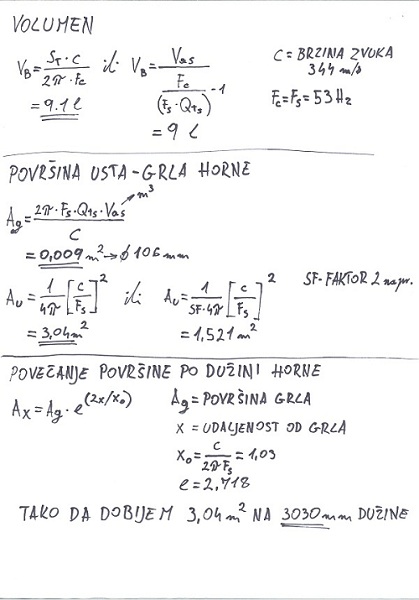 VOLUMEN
V_B = S_T · C / 2π · F_c ili V_B = V_as / (F_c / (F_s · Q_ts) - 1)
= 9.1 l
= 9 l
C = BRZINA ZVUKA
344 m/s
F_c = F_s = 53 Hz
POVRŠINA USTA - GRLA HORNE
A_g = 2π · F_s · Q_ts · V_as / C → m³
= 0,009 m² → ϕ 106 mm
A_U = 1/4π [C/F_s]² ili A_U = 1/SF·4π [C/F_s]² SF - FAKTOR 2 napr.
= 3,04 m² = 1,521 m²
POVEČANJE POVRŠINE PO DUŽINI HORNE
A_X = A_g · e^(2x/x_0)
A_g = POVRŠINA GRLA
X = UDALJENOST OD GRLA
X_0 = C / 2πF_s = 1,03
e = 2,718
TAKO DA DOBIJEM 3,04 m² NA 3030 mm DUŽINE